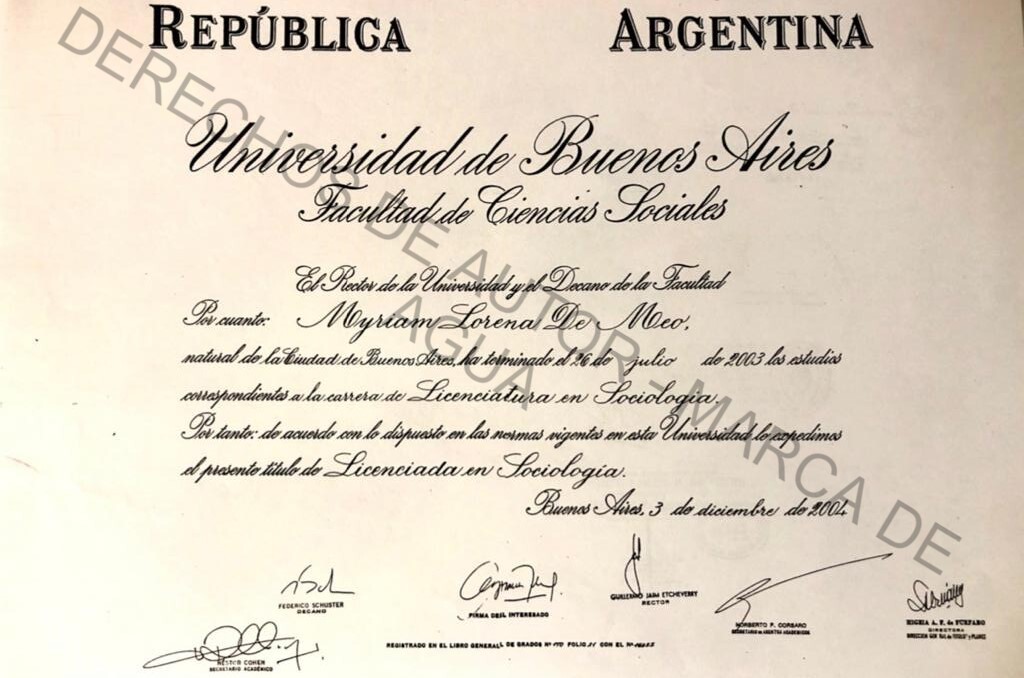 REPÚBLICA ARGENTINA
Universidad de Buenos Aires
Facultad de Ciencias Sociales
El Rector de la Universidad y el Decano de la Facultad
Por cuanto: Myriam Lorena De Meo,
natural de la Ciudad de Buenos Aires, ha terminado el 26 de julio de 2003 los estudios
correspondientes a la carrera de Licenciatura en Sociología.
Por tanto: de acuerdo con lo dispuesto en las normas vigentes en esta Universidad lo expedimos
el presente título de Licenciada en Sociología.
Buenos Aires, 3 de diciembre de 2004
FEDERICO SCHUSTER
DECANO
FIRMA DEL INTERESADO
GUILLERMO JAIM ETCHEVERRY
RECTOR
NORBERTO P. CORBARO
SECRETARIO DE ASUNTOS ACADEMICOS
HIGHIA A. F. de FURFARO
DIRECTORA
NESTOR COHEN
SECRETARIO ACADÉMICO
REGISTRADO EN EL LIBRO GENERAL DE GRADOS Nº FOLIO CON EL Nº
DERECHOS DE AUTOR - MARCA DE
AGUA